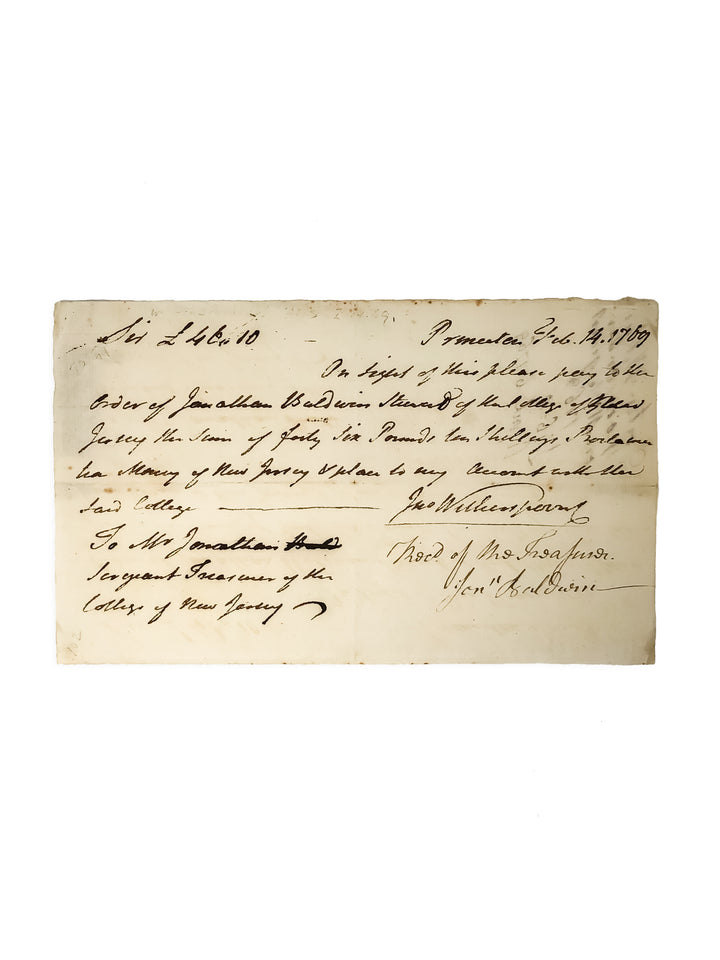 Sir £ 46,, 10 – Princeton Feb. 14. 1769
On sight of this please pay to the
Order of Jonathan Baldwin Steward of the College of New
Jersey the Sum of forty Six Pounds ten Shillings Proclama
tion Money of New Jersey & place to my Account with the
said College ——— Jno Witherspoon
To Mr Jonathan
Sergeant Treasurer of the
College of New Jersey
Recd. of the Treasurer.
Jonn Baldwin